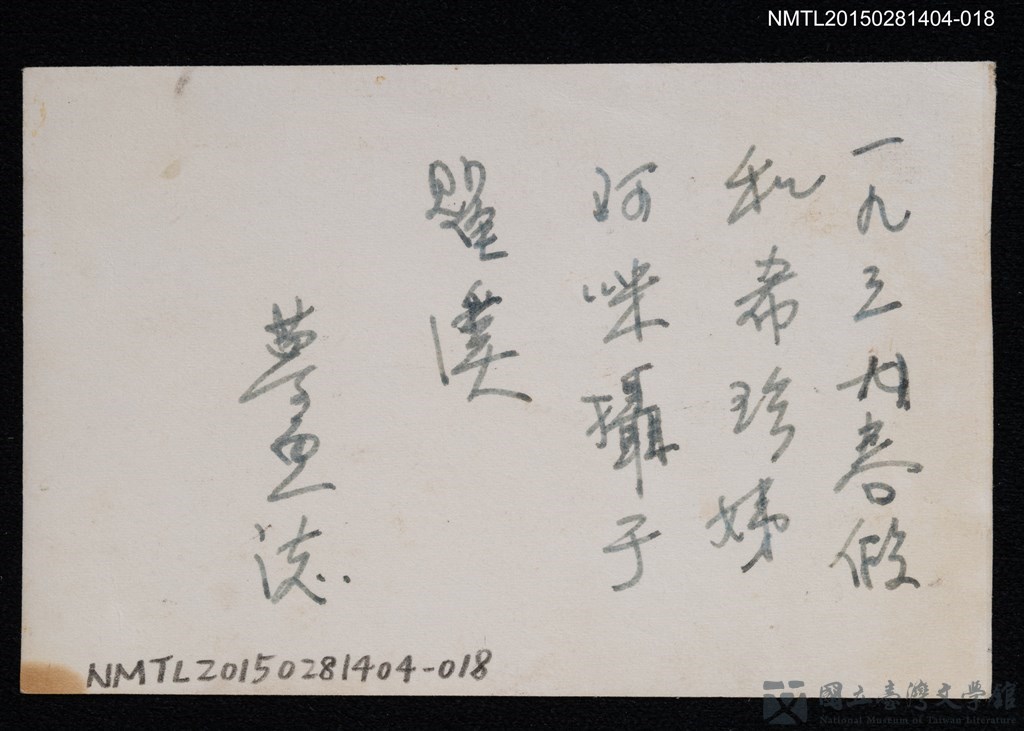 一九三 春假
和希珍
阿咪攝于
溪
誌
NMTL20150281404-018
NMTL20150281404-018
國立臺灣文學館
National Museum of Taiwan Literature